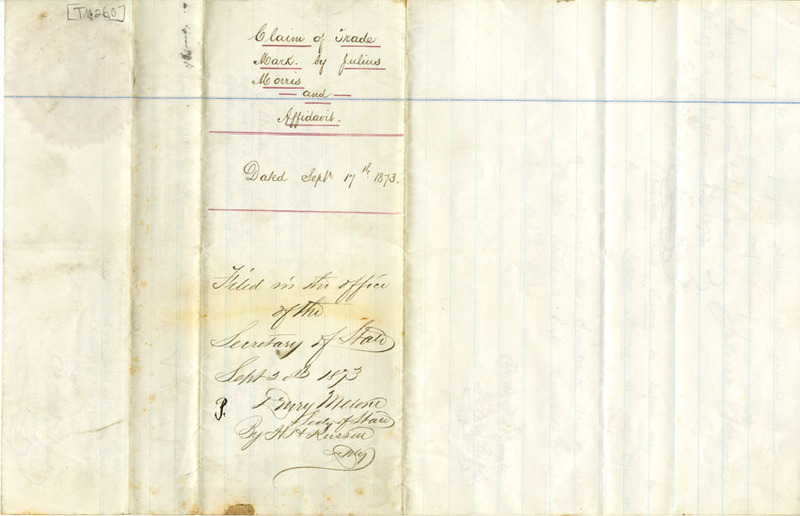 [TM260]
Claim of Trade
Mark. by Julius
Morris
— and —
Affidavit.
Dated Sept. 17th 1873.
Filed in the office
of the
Secretary of State
Sept 1873
Drury Melone
Secty of State
By H H Russell
Deputy